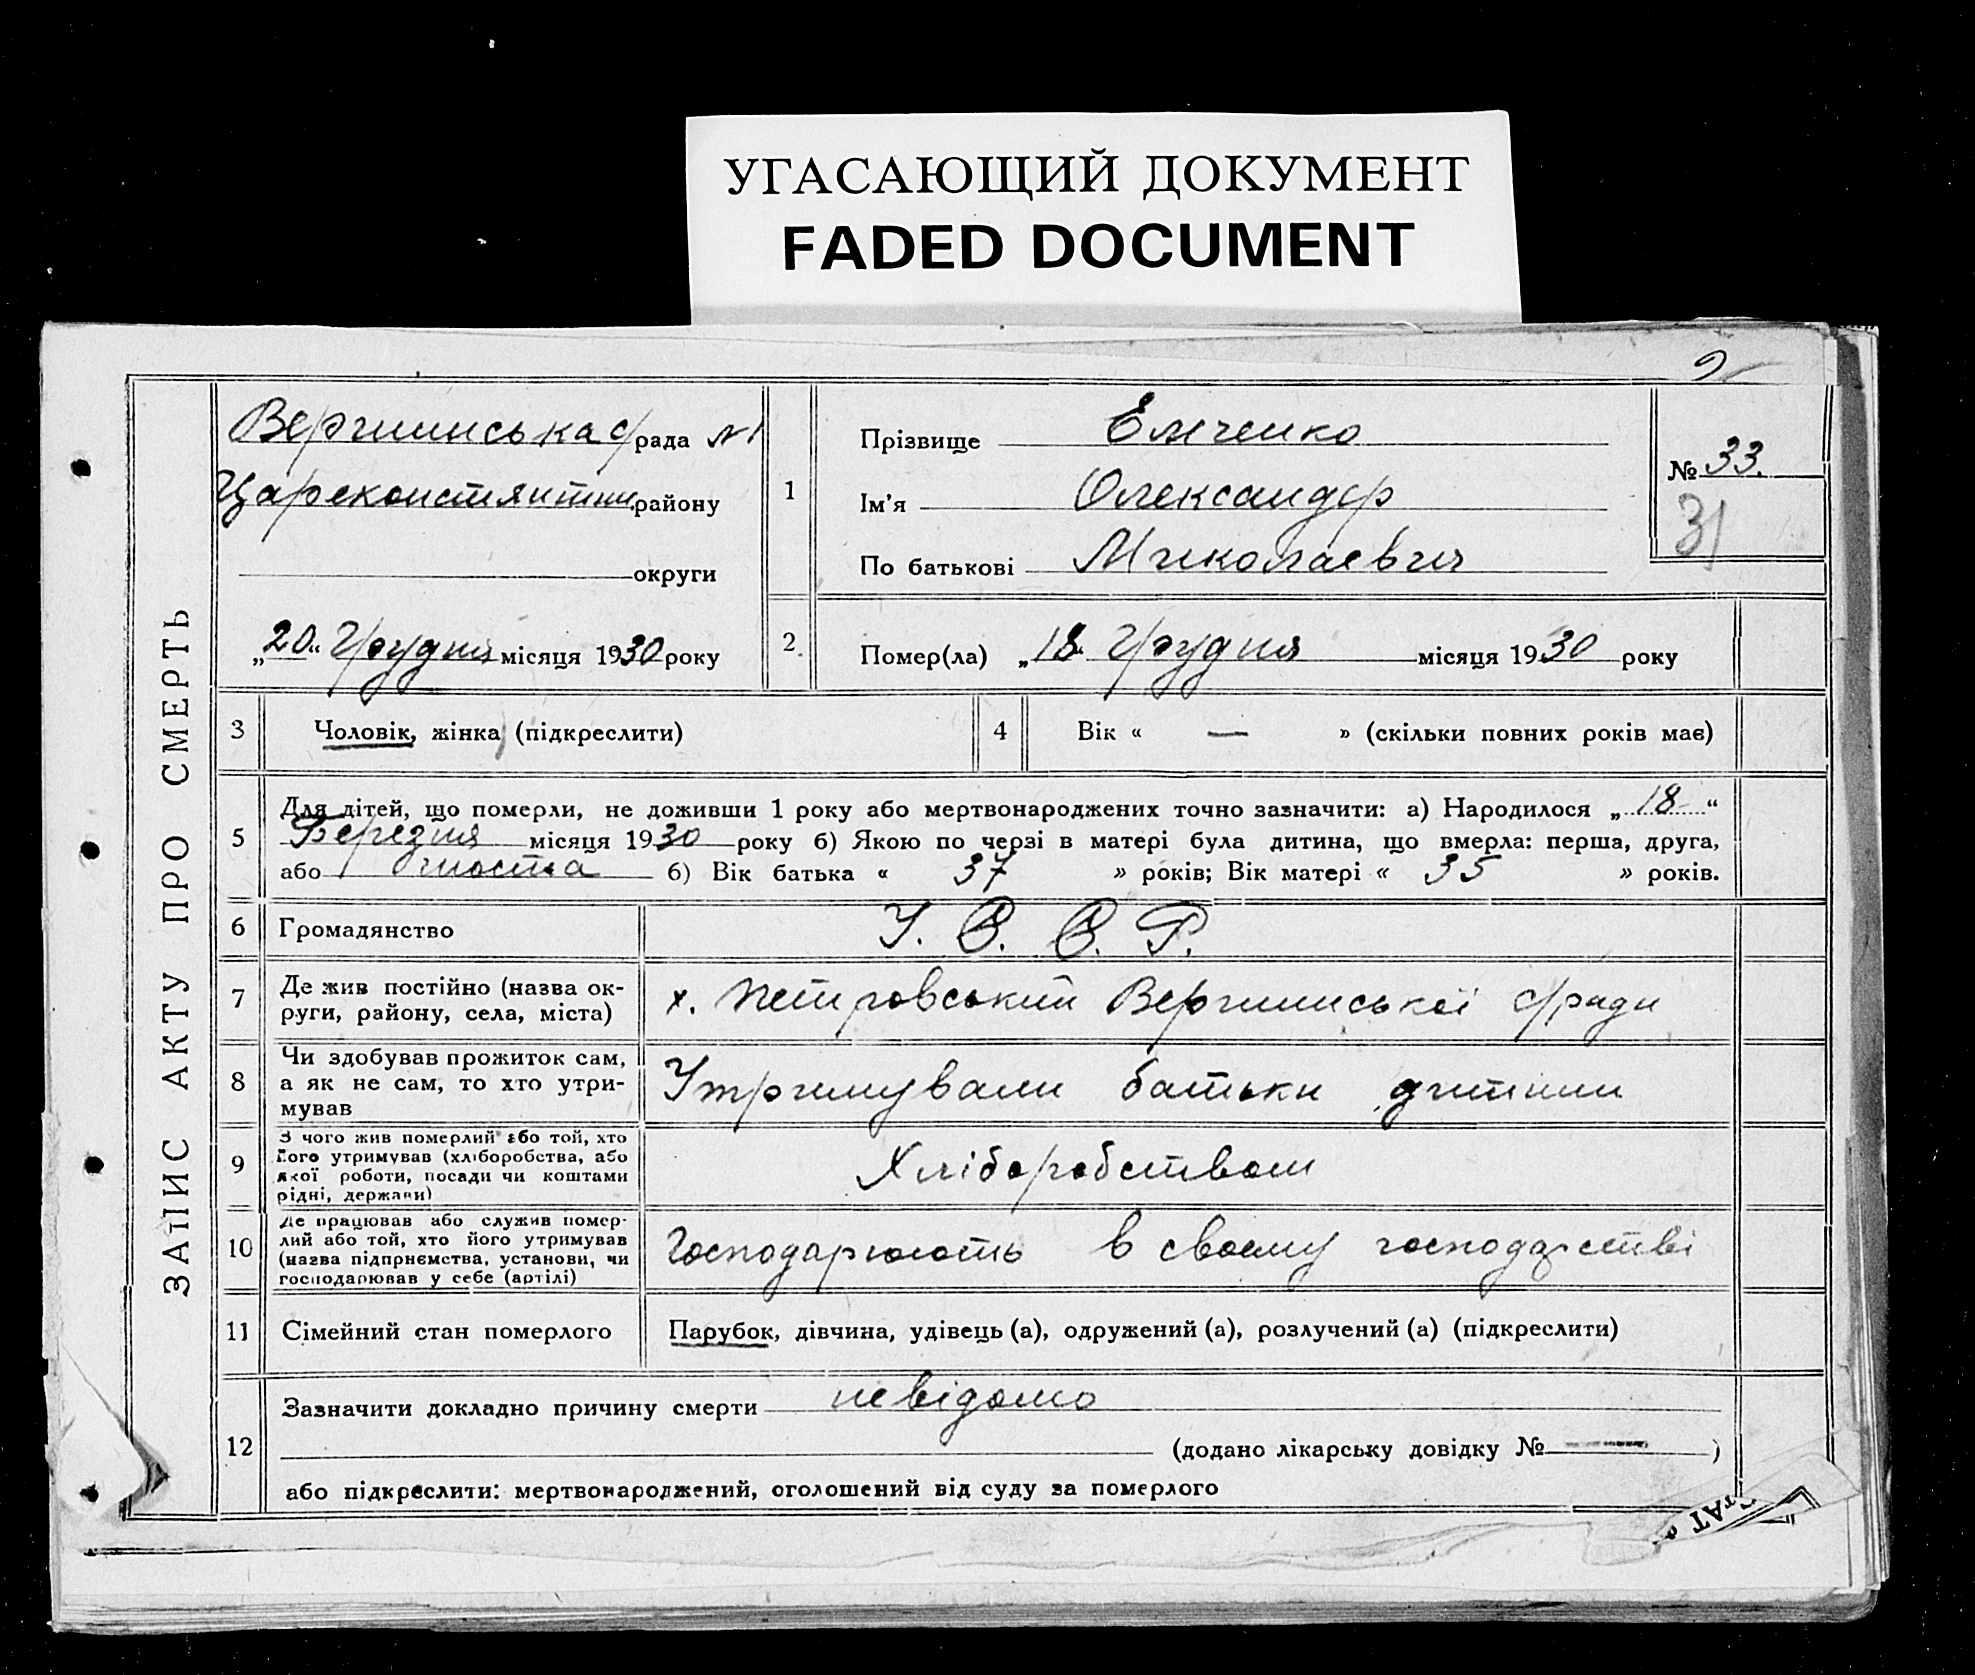 УГАСАЮЩИЙ ДОКУМЕНТ
FADED DOCUMENT
ЗАПИС АКТУ ПРО СМЕРТЬ
Вершинська с/рада №1
Цареконстянтин. району
округи
„20“ Грудня місяця 1930 року
1
Прізвище Емченко
Ім'я Олександр
По батькові Миколаевич
№ 33.
31
2. Помер(ла) „18“ Грудня місяця 1930 року
3 Чоловік, жінка (підкреслити)
4 Вік « — » (скільки повних років має)
5 Для дітей, що померли, не доживши 1 року або мертвонароджених точно зазначити: а) Народилося „18“
Березня місяця 1930 року б) Якою по черзі в матері була дитина, що вмерла: перша, друга,
або шоста б) Вік батька « 37 » років; Вік матері « 35 » років.
6 Громадянство У. С. С. Р.
7 Де жив постійно (назва ок-
руги, району, села, міста)
х. Петровський Вершинської с/ради
8 Чи здобував прожиток сам,
а як не сам, то хто утри-
мував
Утримували батьки дитини
9 З чого жив померлий або той, хто
його утримував (хліборобства, або
якої роботи, посади чи коштами
рідні, держави)
Хліборобством
10 Де працював або служив помер-
лий або той, хто його утримував
(назва підприємства, установи, чи
господарював у себе (артілі)
Господарюють в своему господарстві
11 Сімейний стан померлого Парубок, дівчина, удівець (а), одружений (а), розлучений (а) (підкреслити)
12 Зазначити докладно причину смерти невідомо
(додано лікарську довідку № — )
або підкреслити: мертвонароджений, оголошений від суду за померлого